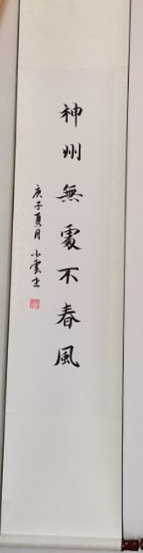 神州無處不春風
庚子夏月 小雲書